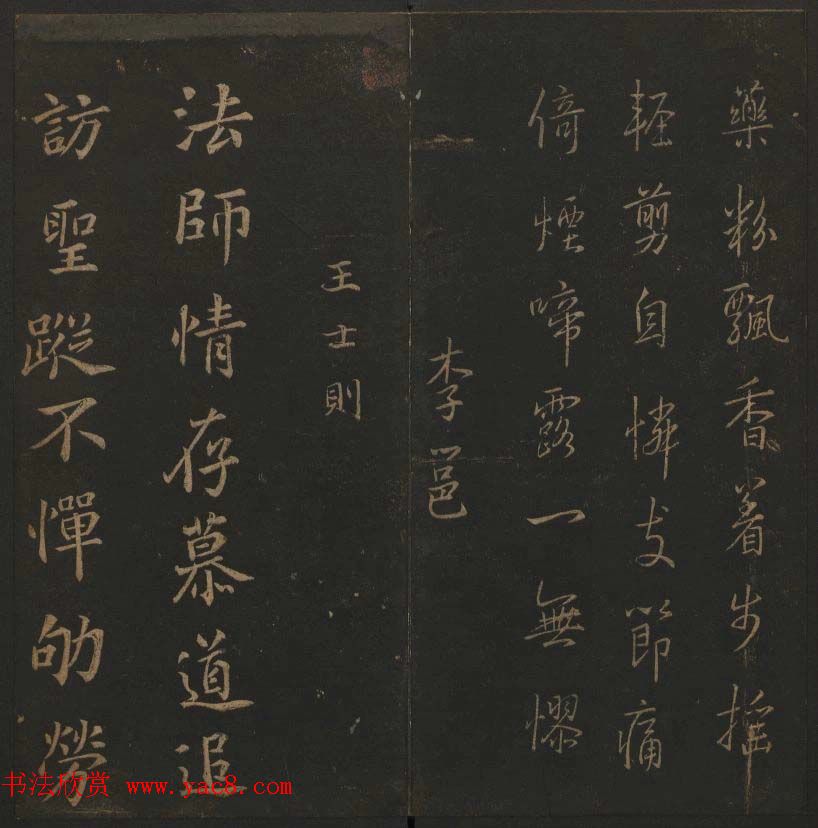 藥粉飄香着步摇
輕剪自憐支節痛
倚煙啼露一無憀
李邕
王士則
法師情存慕道追
訪聖蹤不憚劬勞
书法欣赏 www.yac8.com